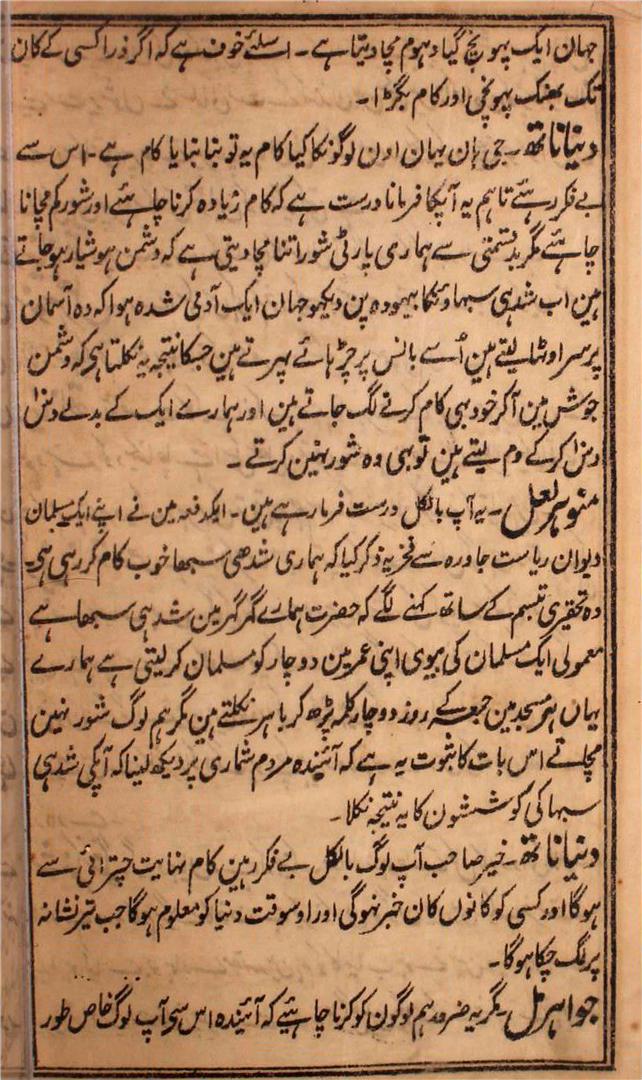 جہان ایک پہونچ گیا دہوم مچا دیتا ہے ۔ اسلئے خوف ہے کہ اگر ذرا کسی کے کان
تک بھنک پہونچی اور کام بگڑا ۔
دینا ناتھ ۔ جی ہان یہان اون لوگونکا کیا کام یہ تو بنا بنایا کام ہے ۔ اس سے
بے فکر رہئے تاہم یہ آپکا فرمانا درست ہے کہ کام زیادہ کرنا چاہئے اور شور کم مچانا
چاہئے مگر بدقسمتی سے ہماری پارٹی شور اتنا مچا دیتی ہے کہ دشمن ہوشیار ہو جاتے
ہین اب شدہی سبہاونکا بیہودہ پن دیکھو جہان ایک آدمی شدہ ہوا کہ دہ آسمان
پر سر اوٹھا لیتے ہین اُسے بانس پر چڑہائے پہرتے ہین جسکا نتیجہ یہ نکلتا ہی کہ دشمن
جوش مین آکر خود بہی کام کرنے لگ جاتے ہین اور ہمارے ایک کے بدلے دس
دس کر کے دم لیتے ہین تو بہی وہ شور نہین کرتے ۔
منوہر لعل ۔ یہ آپ بالکل درست فرما رہے ہین ۔ ایکدفعہ مین نے اپنے ایک مسلمان
دیوان ریاست جاورہ سے فخریہ ذکر کیا کہ ہماری شدھی سبھا خوب کام کر رہی ہی ۔
دہ تحقیری تبسم کے ساتھ کہنے لگے کہ حضرت ہمارے گھر گھر مین شدہی سبھا ہے
معمولی ایک مسلمان کی بیوی اپنی عمر مین دو چار کو مسلمان کر لیتی ہے ہمارے
یہان ہر مسجد مین جمعہ کے روز دو چار کلمہ پڑھ کر باہر نکلتے ہین مگر ہم لوگ شور نہین
مچاتے اس بات کا ثبوت یہ ہے کہ آئیندہ مردم شماری پر دیکھ لینا کہ آپکی شدہی
سبہا کی کوششون کا یہ نتیجہ نکلا ۔
دینا ناتھ ۔ خیر صاحب آپ لوگ بالکل بے فکر رہین کام نہایت چترائی سے
ہوگا اور کسی کو کانوں کان خبر نہوگی اور اوسوقت دنیا کو معلوم ہوگا جب تیر نشانہ
پر لگ چکا ہوگا ۔
جواہر مل ۔ مگر یہ ضرور ہم لوگون کو کرنا چاہئیے کہ آئیندہ اس سے آپ لوگ خاص طور